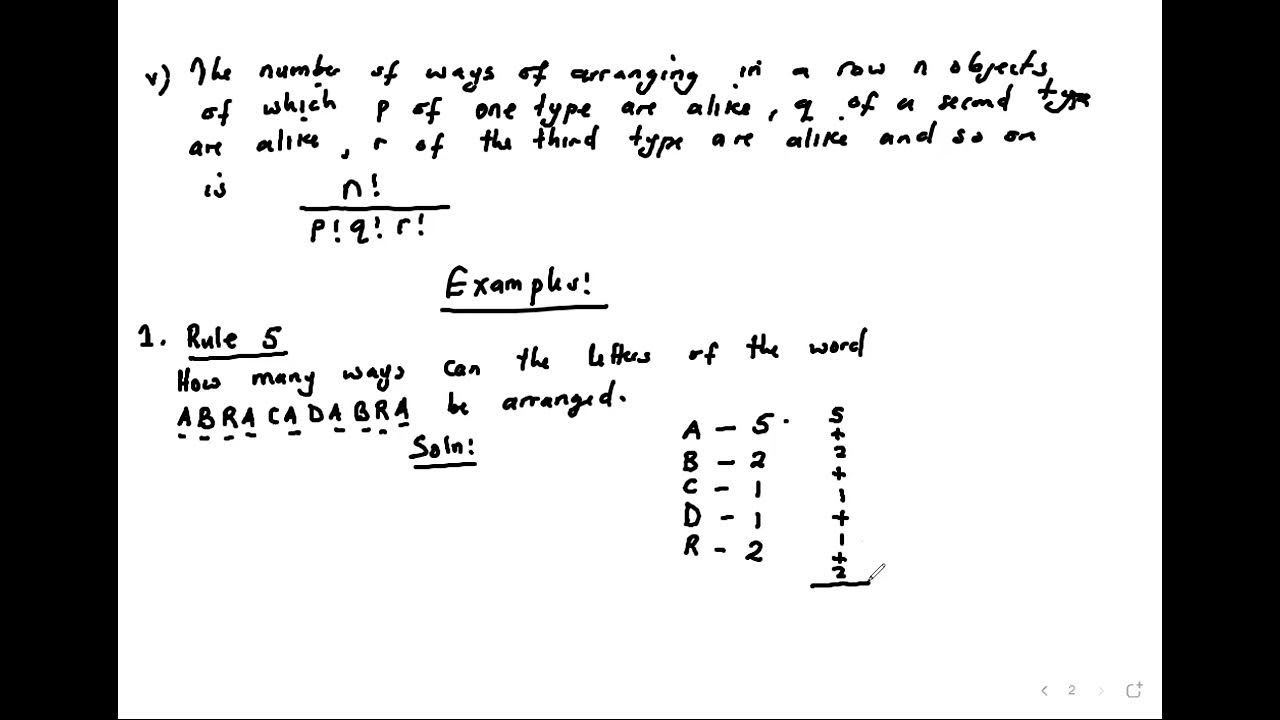 v) The number of ways of arranging in a row n objects
of which p of one type are alike, q of a second type
are alike, r of the third type are alike and so on
is n!
p! q! r!
Examples:
1. Rule 5
How many ways can the letters of the word
ABRACADABRA be arranged.
Soln:
A - 5
B - 2
C - 1
D - 1
R - 2
5
+
2
+
1
+
1
+
2
2